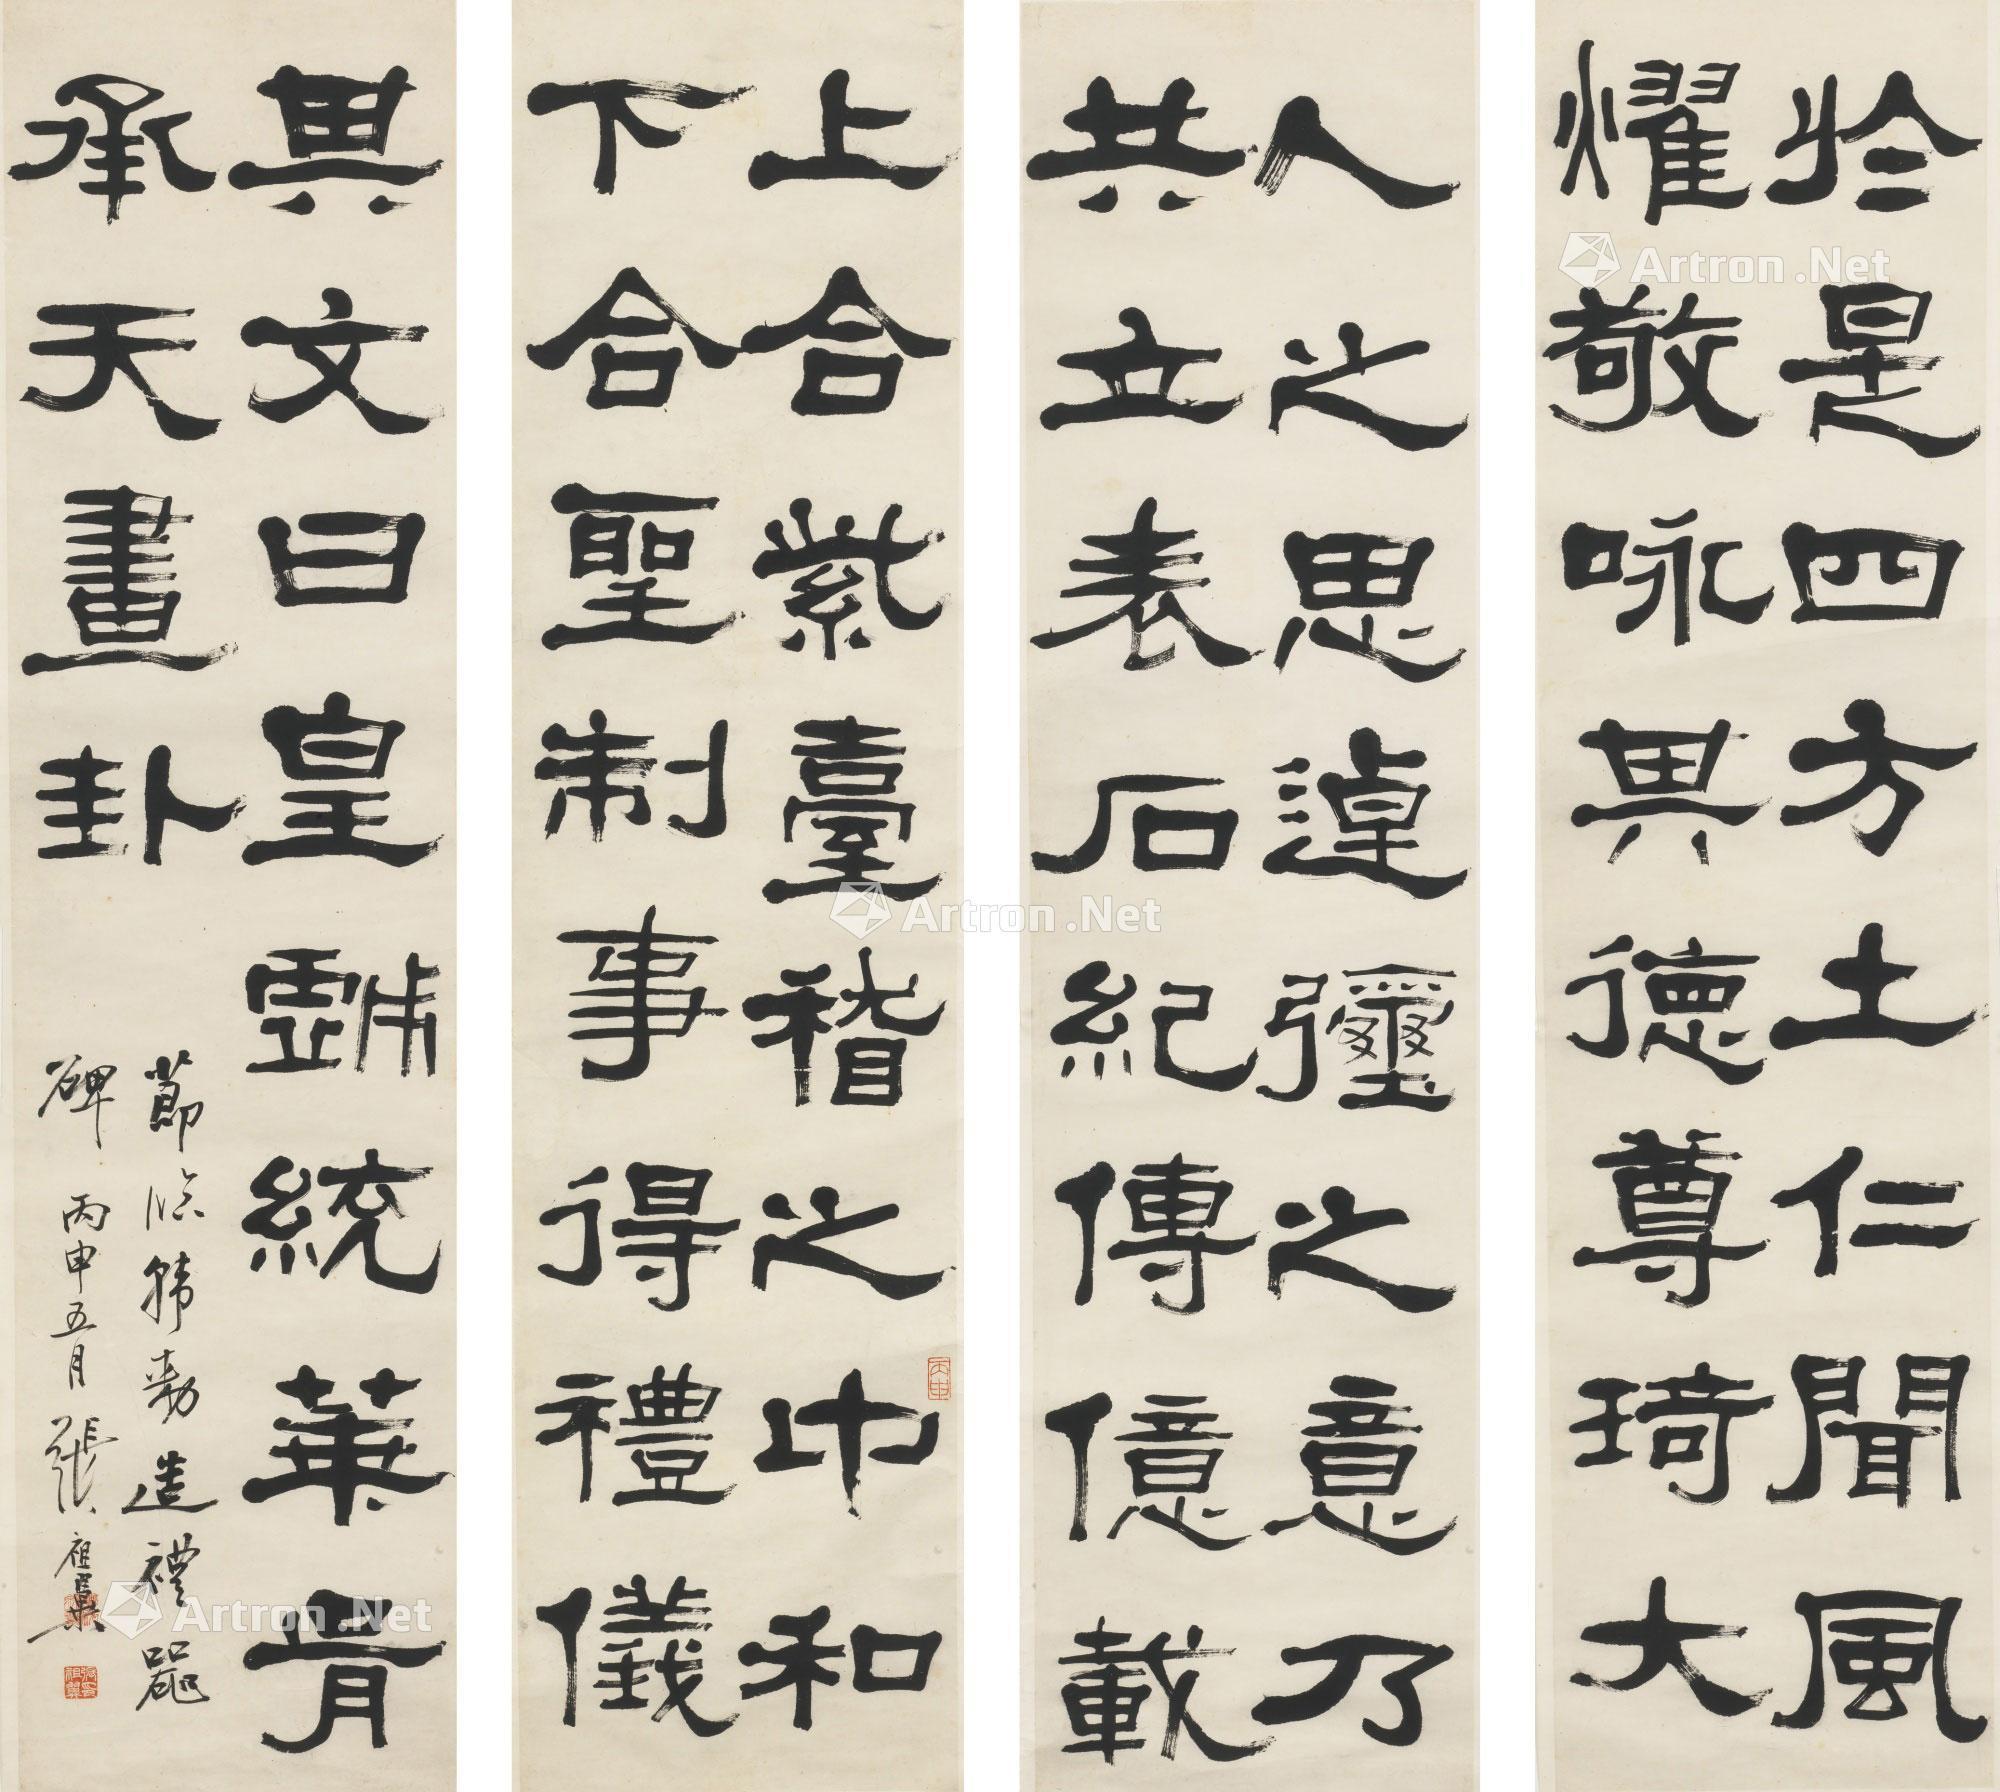 於是四方土仁聞風
燿敬咏其德尊琦大
人之思逴彌之意乃
共立表石紀傳億載
上合紫臺稽之中和
下合聖制事得禮儀
其文曰皇戲統華胥
承天畫卦
節臨韓勑造禮器
碑 丙申五月 張祖翼
丙申
Artron.Net
Artron.Net
Artron.Net